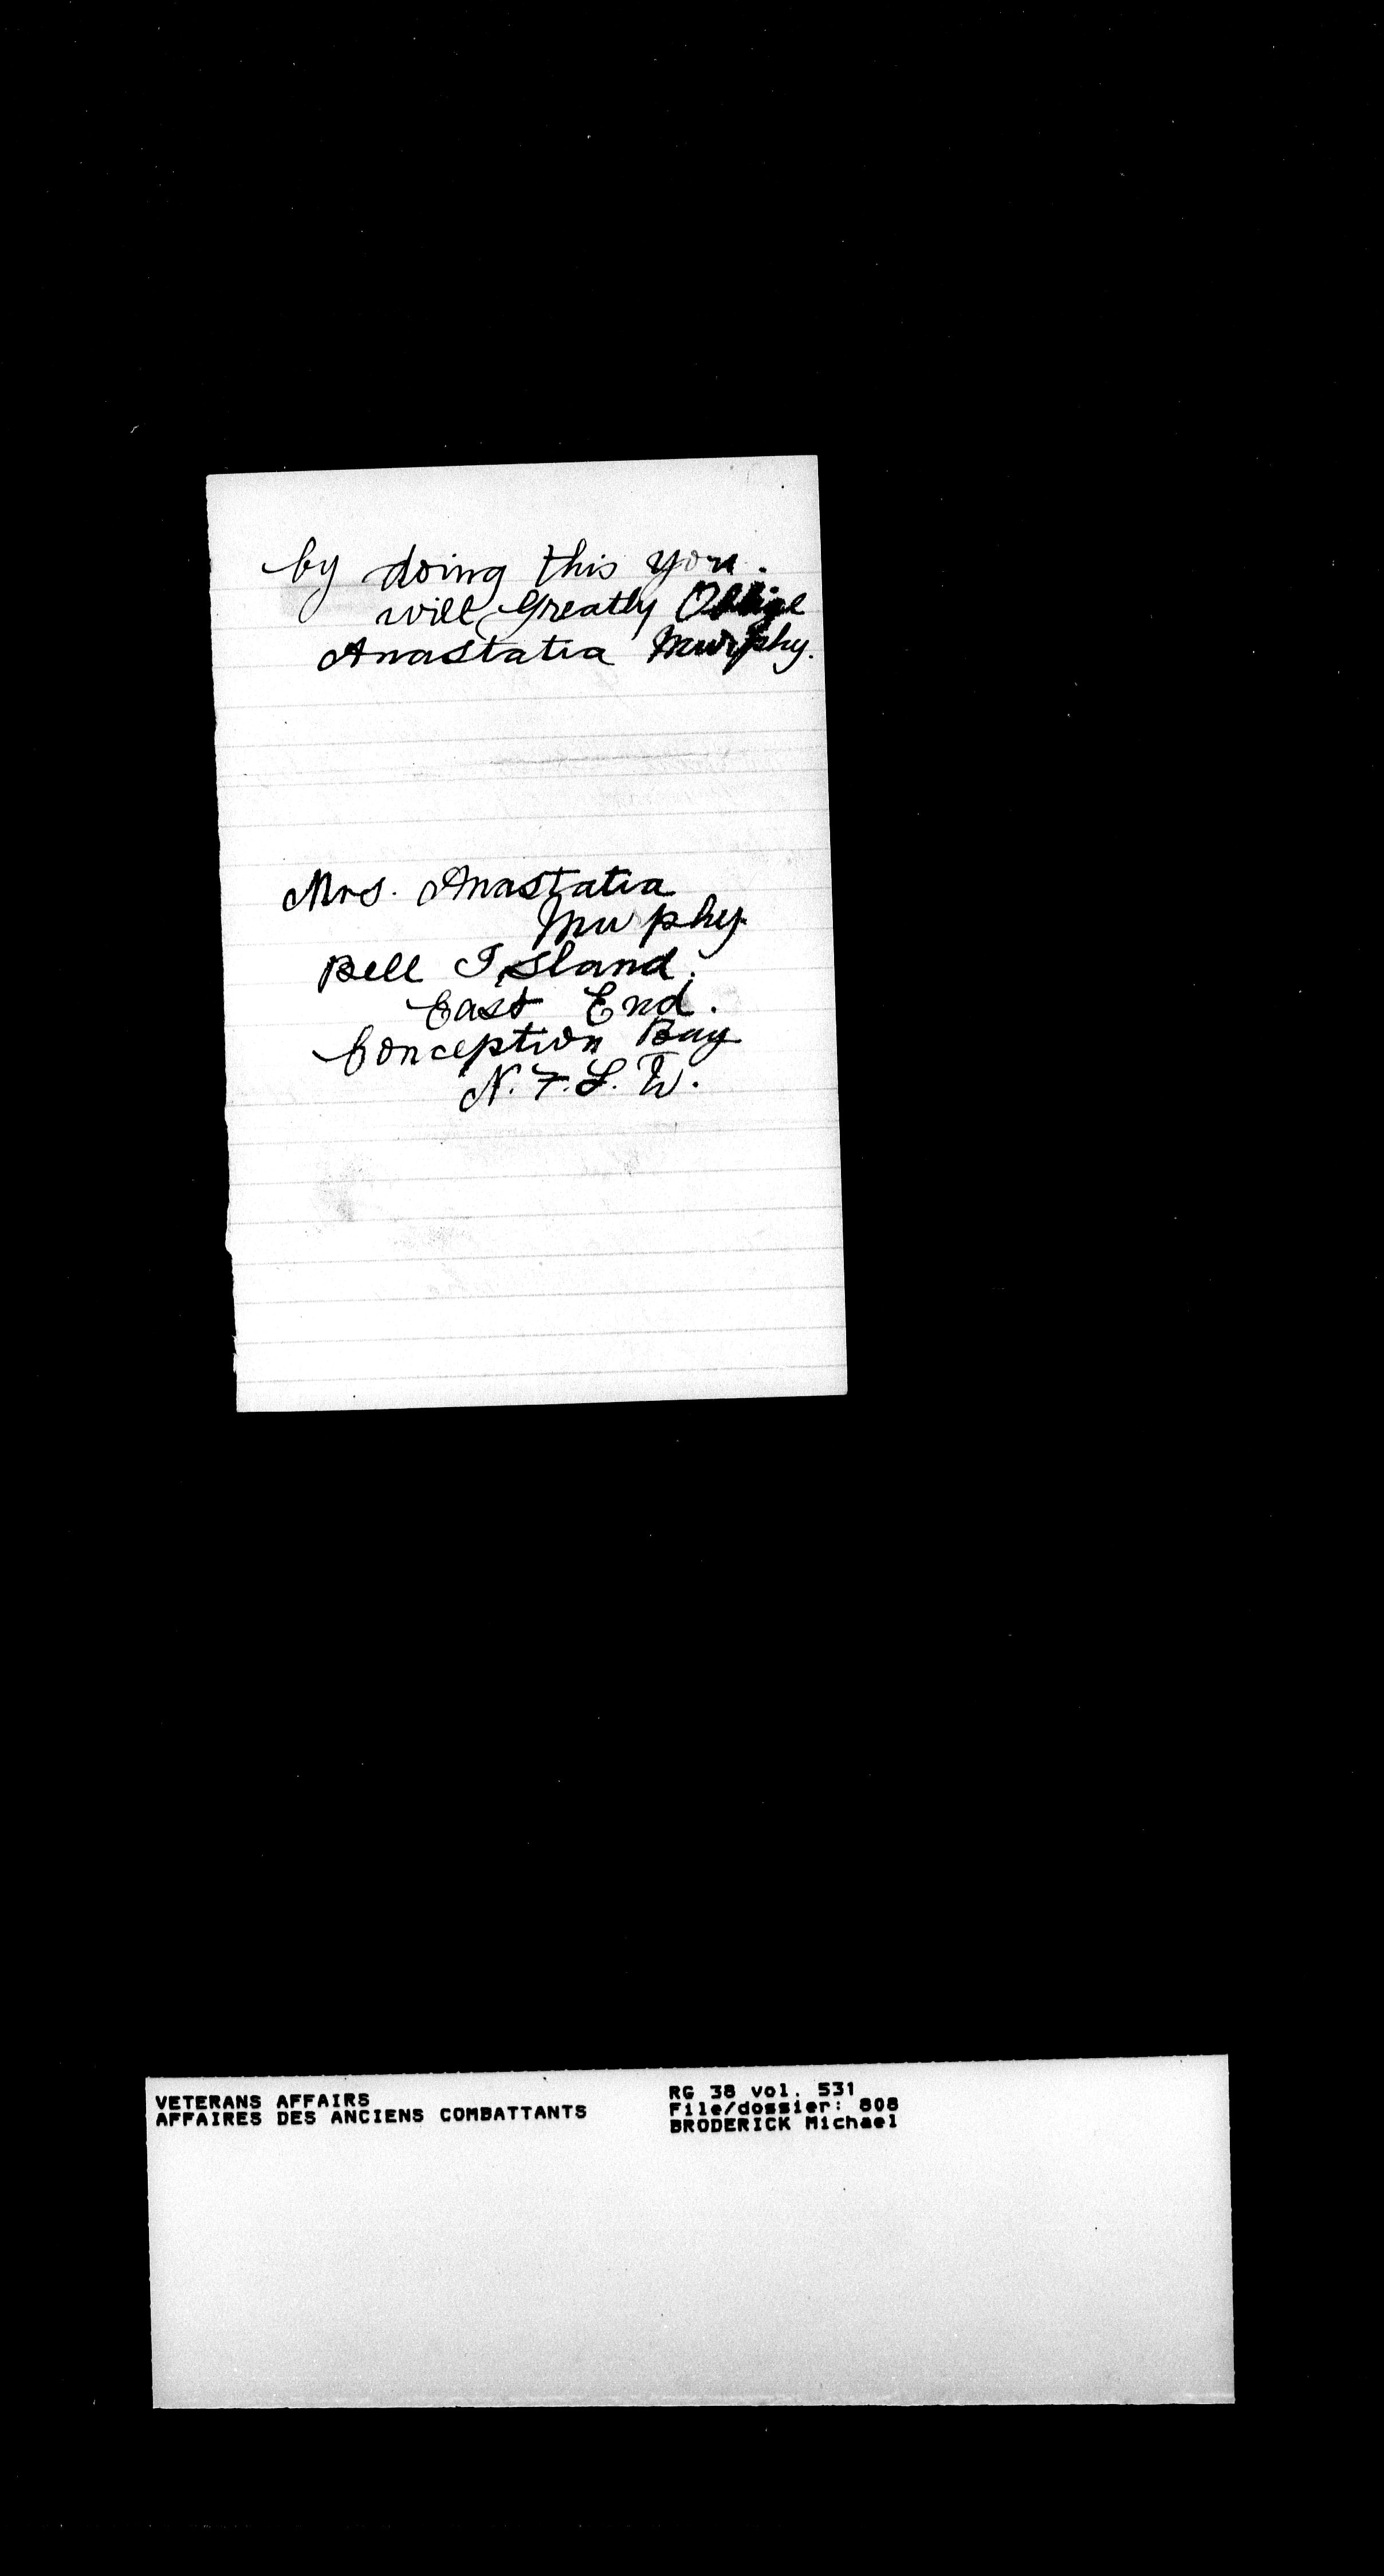 by doing this you.
will Greatly Oblige
Anastatia Murphy.
Mrs. Anastatia
Murphy.
Bell Island.
East End.
Conception Bay
N. F. L. D.
VETERANS AFFAIRS
AFFAIRES DES ANCIENS COMBATTANTS
RG 38 vol. 531
File/dossier: 808
BRODERICK Michael